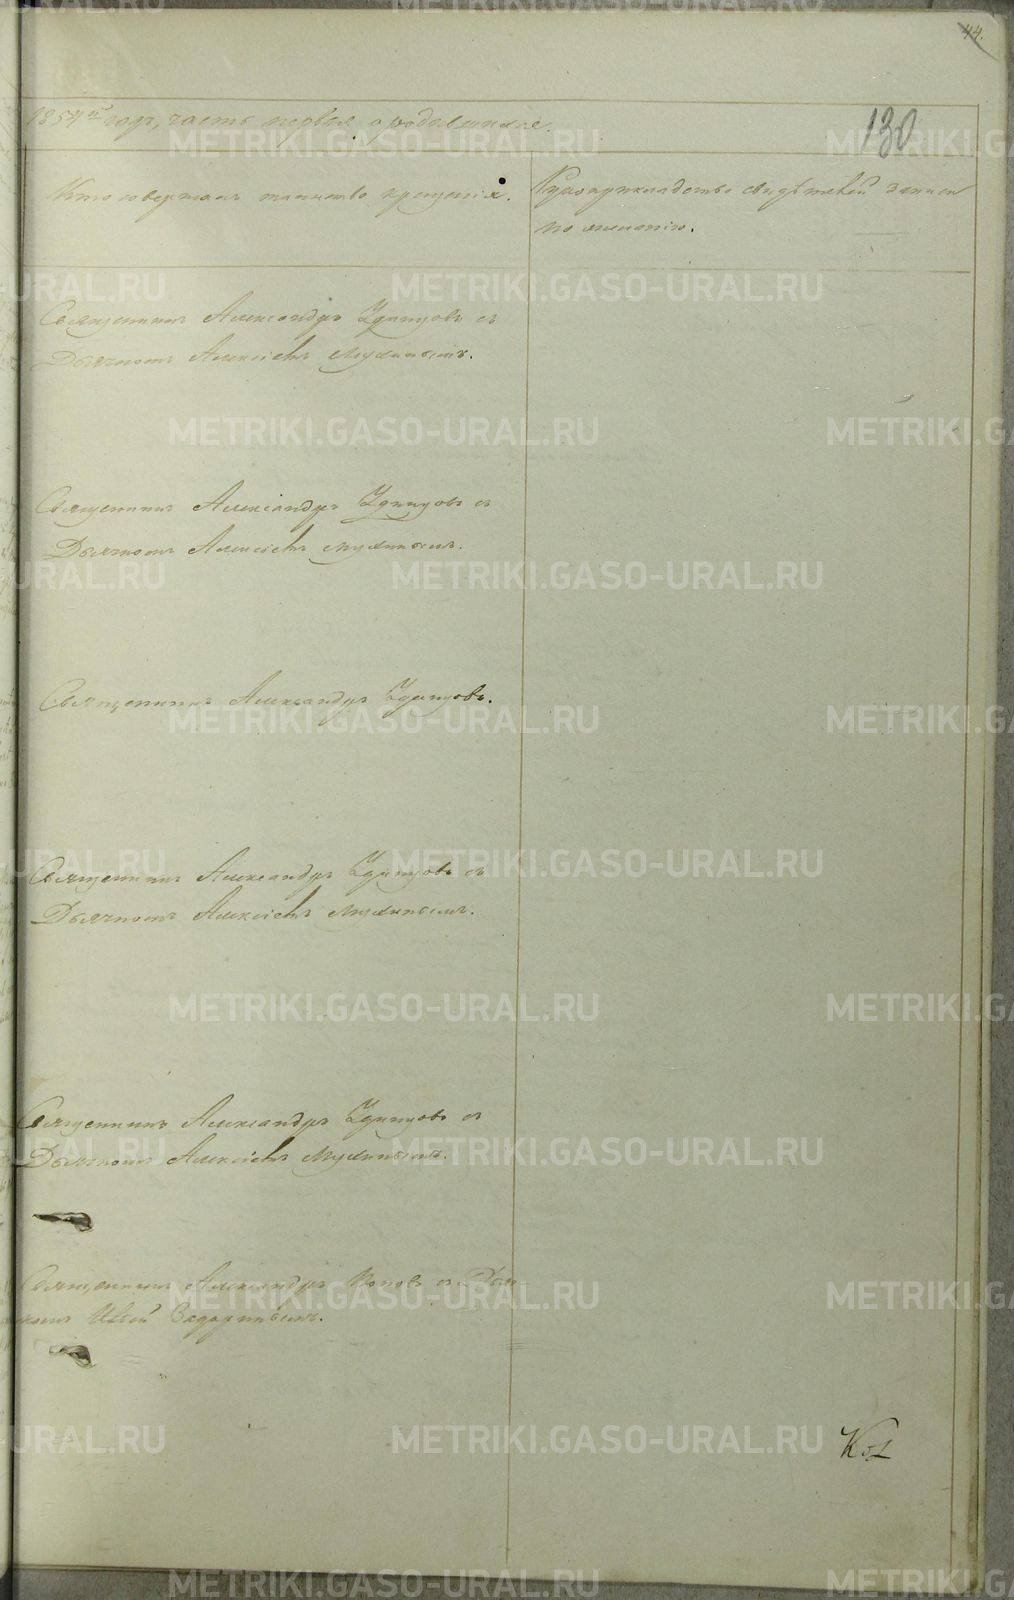 44.
130
1854й годъ, часть первая о родившихся.
Кто совершалъ таинство крещенія.
Рукоприкладство свидѣтелей записи
по желанію.
Священникъ Александръ Удинцовъ съ
Дьячкомъ Алексіемъ Мухинымъ.
Священникъ Александръ Удинцовъ съ
Дьячкомъ Алексіемъ Мухинымъ.
Священникъ Александръ Удинцовъ.
Священникъ Александръ Удинцовъ съ
Дьячкомъ Алексіемъ Мухинымъ.
Священникъ Александръ Удинцовъ съ
Дьячкомъ Алексіемъ Мухинымъ.
Священникъ Александръ Поповъ съ Дьяч-
комъ
METRIKI.GASO-URAL.RU